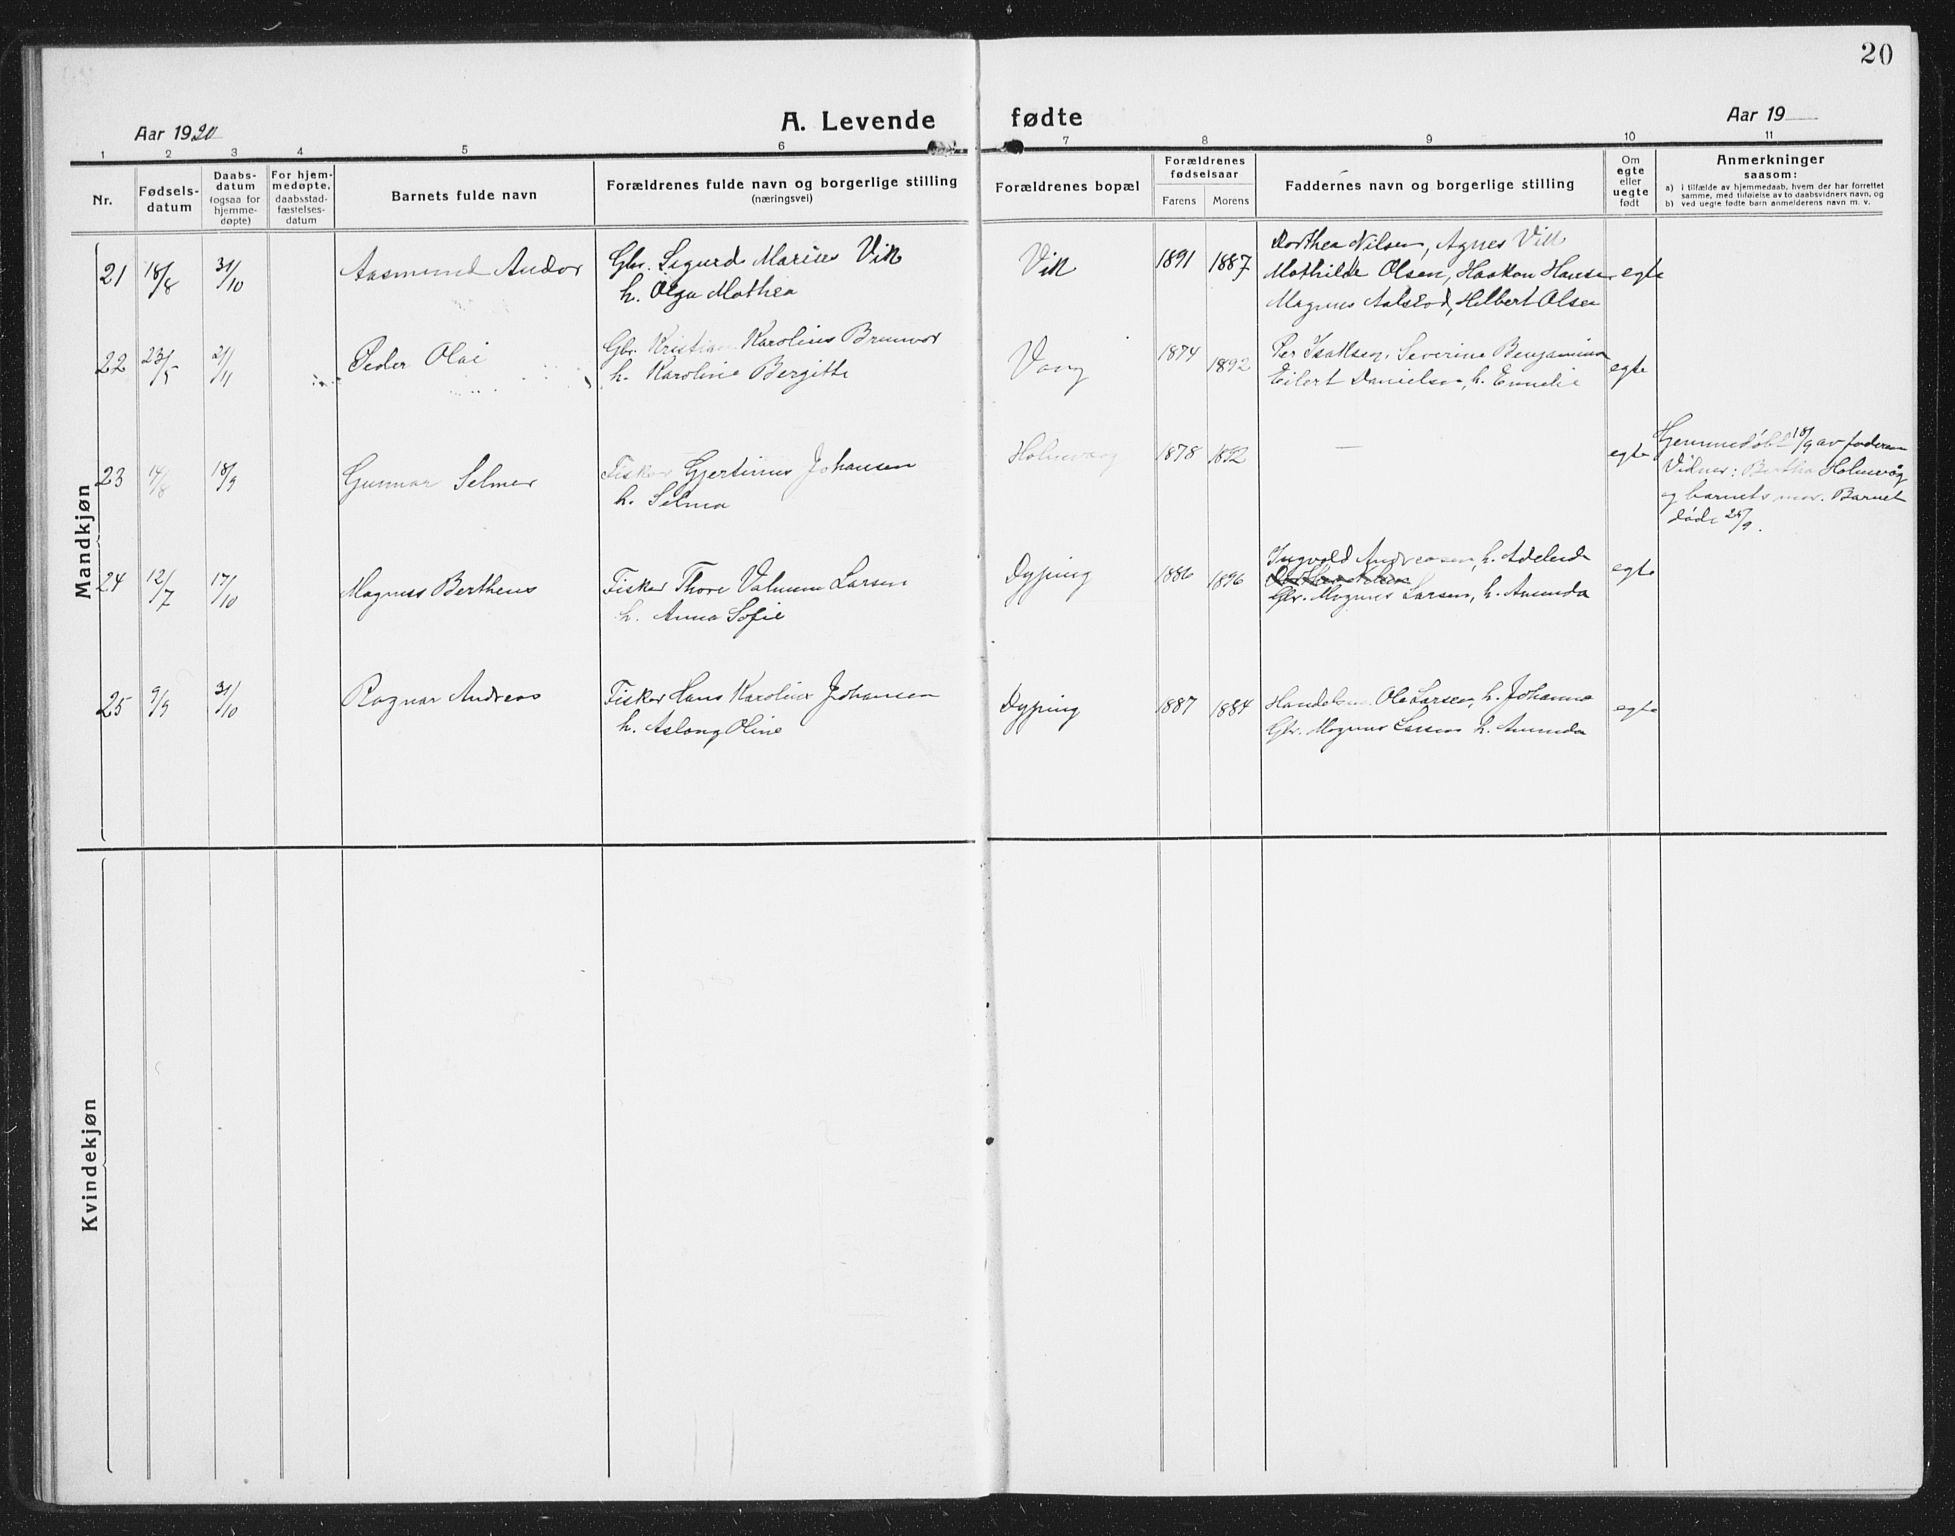 20
Aar 1920
A. Levende fødte
Aar 19
1 2 3 4 5 6 7 8 9 10 11
Nr.
Fødsels-
datum
Daabs-
datum
(ogsaa for
hjemme-
døpte)
For hjem-
medøpte,
daabsstad-
fæstelses-
datum
Barnets fulde navn
Forældrenes fulde navn og borgerlige stilling
(næringsvei)
Forældrenes bopæl
Forældrenes
fødselsaar
Farens Morens
Faddernes navn og borgerlige stilling
Om
egte
eller
uegte
født
Anmerkninger
saasom:
a) i tilfælde av hjemmedaab, hvem der har forrettet
samme, med tilføielse av to daabsvidners navn, og
b) ved uegte fødte barn anmelderens navn m. v.
Mandkjøn
21 18/8 31/10 Aasmund Andor
Gbr. Sigurd Marius Vik
h. Olga Mathea
Vik 1891 1887
Dorthea Nilsen, Agnes Vik
Mathilde Olsen, Haakon Hansen
Magnus Aalstad, Hilbert Olsen
egte
22 23/5 21/11 Peder Olai
Gbr. Kristian Karolius Brunvor
h. Karoline Bergitte
Vaag 1874 1892
Per Isaksen, Severine Benjaminsen
Eilert Danielsen, h. Emelie
egte
23 14/8 18/9 Gunnar Selmer
Fisker Gjertinius Johansen
h. Selma
Holmvaag 1878 1892
—
egte
Hjemmedøbt 18/9 av faderen
Vidner: Bertha Holmvåg
og barnets mor. Barnet
døde 25/9.
24 12/7 17/10 Magnus Bertheus
Fisker Thore Valnum Larsen
h. Anna Sofie
Dyping 1886 1896
Ingvald Andreasen, h. Adeleide
Gbr. Magnus Larsen, h. Amunda
egte
25 9/9 31/10 Ragnar Andreas
Fisker Hans Karolius Johansen
h. Aslaug Oline
Dyping 1887 1884
Handelsm. Ole Larsen, h. Johanna
Gbr. Magnus Larsen h. Amunda
egte
Kvindekjøn